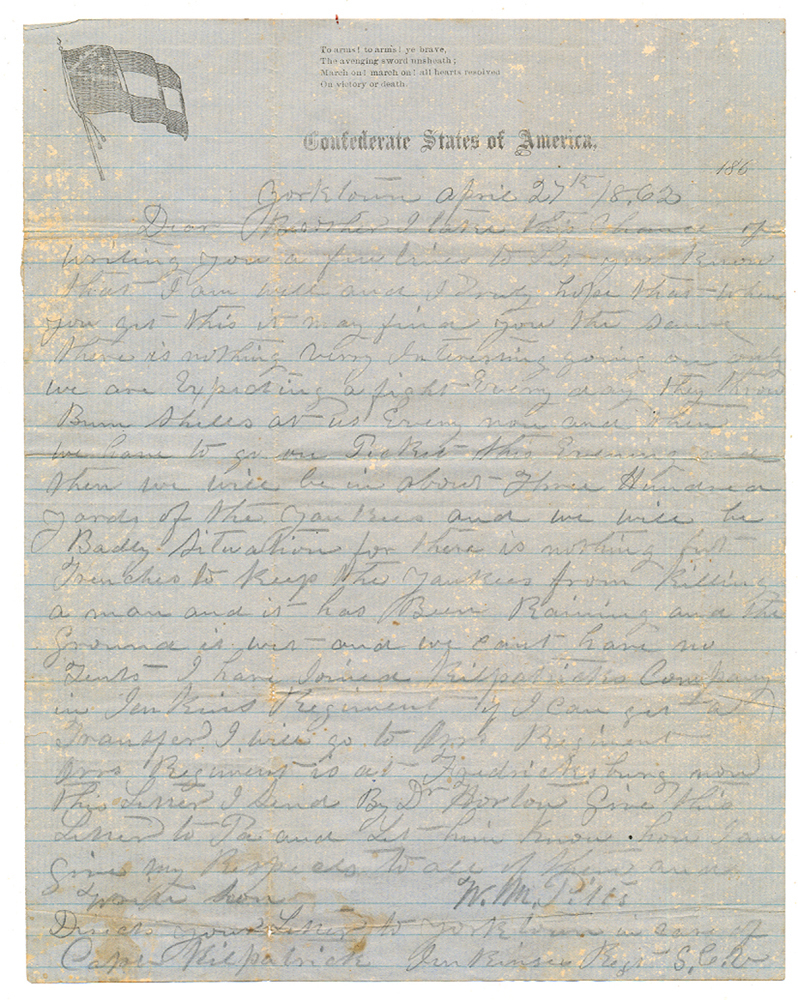 To arms! to arms! ye brave,
The avenging sword unsheath;
March on! march on! all hearts resolved
On victory or death.
Confederate States of America.
186
Yorktown April 27th 1862
Dear Brother I take this Chance of
writing you a few lines to let you know
that I am well and I truly hope that when
you get this it may find you the same
there is nothing verry Interesting going on only
we are Expecting a fight Every day they throw
Bum Shells at us Every now and then
we have to go on Picket this Evening and
then we will be in about Three Hundred
yards of the yankees and we will be
Badly Situation for there is nothing but
Trenches to keep the yankees from Killing
a man and it has Bum Raining and the
Ground is wet and we cant have no
Tents I have Joined Kilpatricks Company
in Jenkins Regiment if I can get a
Transfer I will go to Orrs Regiment
Orrs Regiment is at Fredricksburg now
This Letter I send By Dr Norton Give this
Letter to Pa and Let him know how I am
give my Respects to all of them and
write soon
W. M. Pitts
Direct your Letter to yorktown in care of
Capt Kilpatrick Jenkinses Regt S.C.V